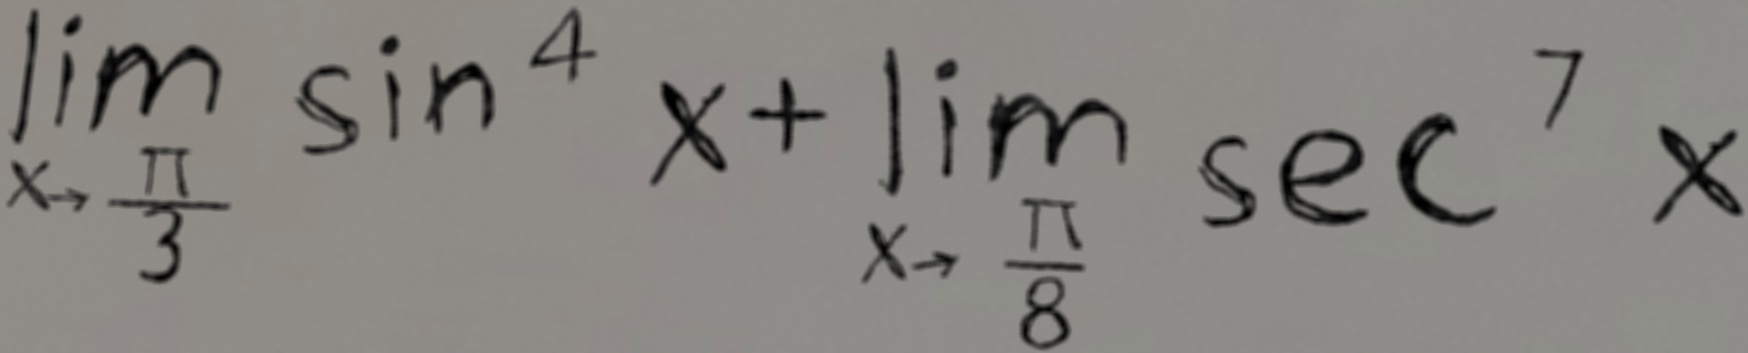 lim_{x→\frac{π}{3}} sin^4 x + lim_{x→\frac{π}{8}} sec^7 x